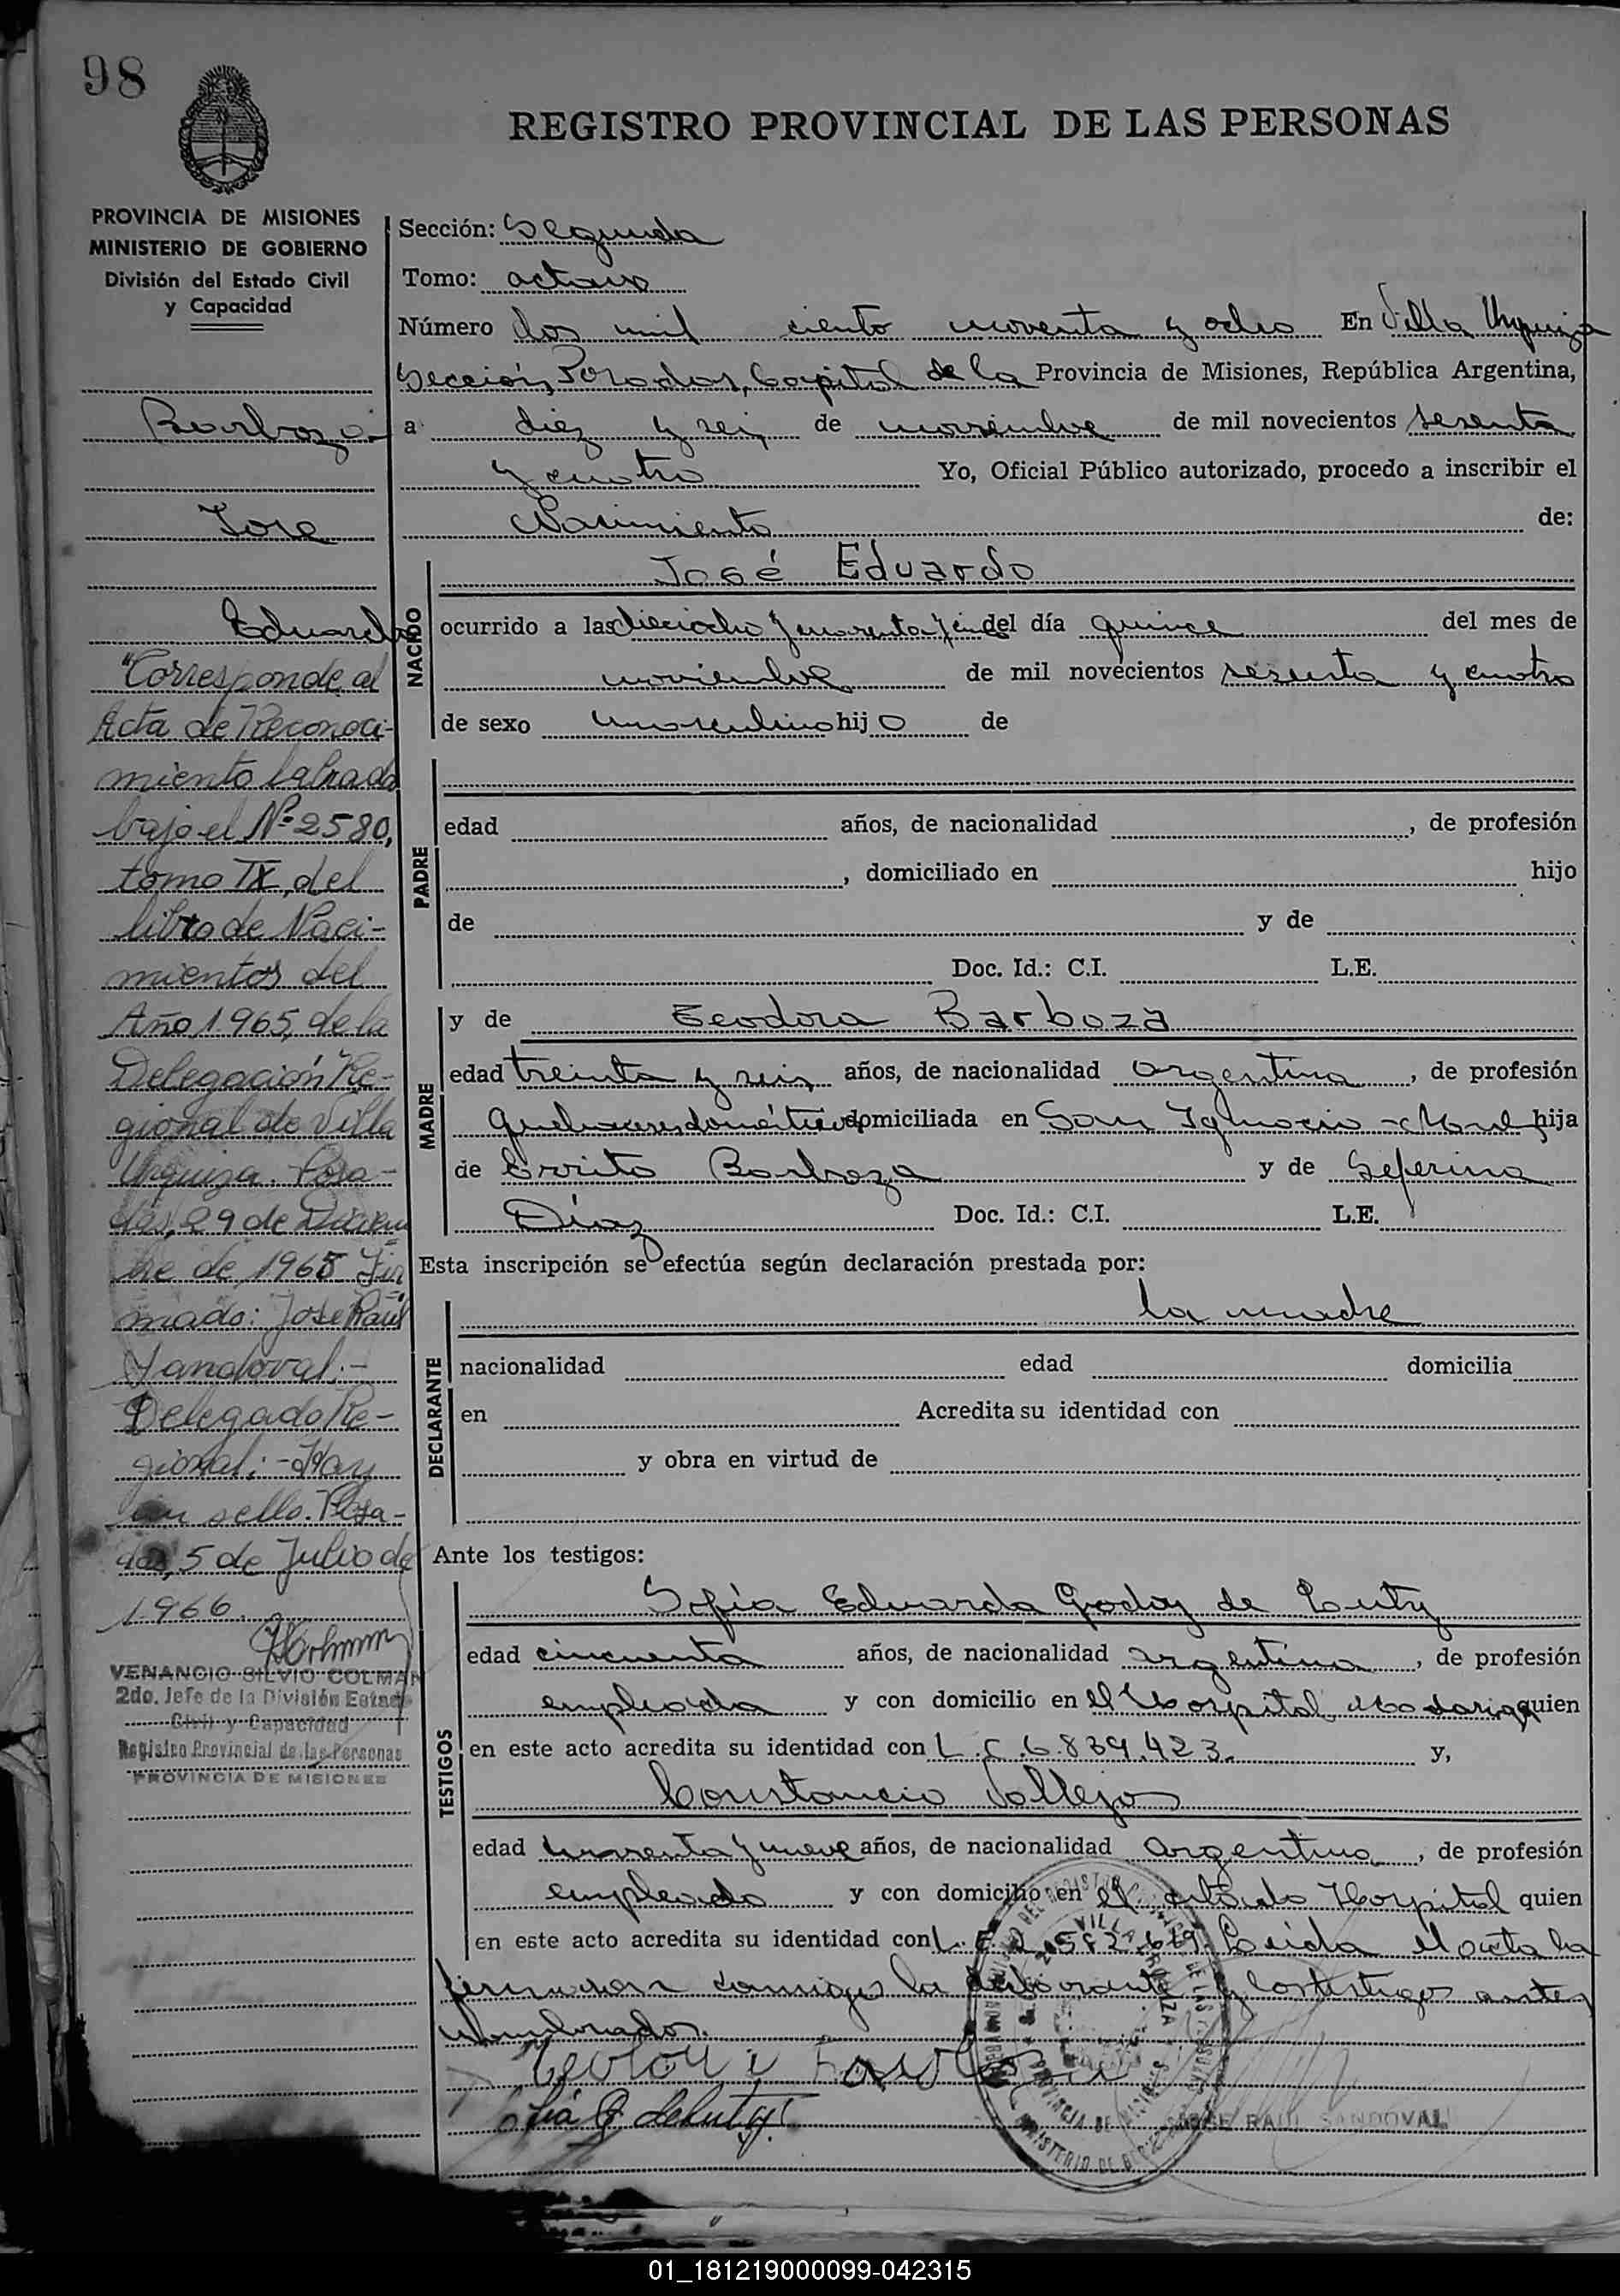 98
REGISTRO PROVINCIAL DE LAS PERSONAS
PROVINCIA DE MISIONES
MINISTERIO DE GOBIERNO
División del Estado Civil
y Capacidad
Barboza
Jose
Eduardo
"Corresponde al
Acta de Reconoci-
miento labrada
bajo el Nº 2580,
tomo IX, del
libro de Naci-
mientos del
Año 1965, de la
Delegación Re-
gional de Villa
Urquiza. Posa-
das, 29 de Diciem
bre de 1965 Fir
mado: Jose Raúl
Sandoval.-
Delegado Re-
gional.- Hay
un sello. Posa-
das, 5 de Julio de
1966.
VENANCIO SILVIO COLMAN
2do. Jefe de la División Estado
Civil y Capacidad
Registro Provincial de las Personas
PROVINCIA DE MISIONES
Sección: Segunda
Tomo: octavo
Número dos mil ciento noventa y ocho En Villa Urquiza
Sección, Posadas, Capital de la Provincia de Misiones, República Argentina,
a diez y seis de noviembre de mil novecientos sesenta
y cuatro Yo, Oficial Público autorizado, procedo a inscribir el
Nacimiento de:
NACIDO
José Eduardo
ocurrido a las dieciocho y cuarenta y cinco del día quince del mes de
noviembre de mil novecientos sesenta y cuatro
de sexo masculino hijo de
PADRE
edad años, de nacionalidad , de profesión
, domiciliado en hijo
de y de
Doc. Id.: C.I. L.E.
MADRE
y de Teodora Barboza
edad treinta y seis años, de nacionalidad argentina, de profesión
quehaceres domésticos domiciliada en San Ignacio hija
de Evrito Barboza y de Seferina
Díaz Doc. Id.: C.I. L.E.
Esta inscripción se efectúa según declaración prestada por:
DECLARANTE
la madre
nacionalidad edad domicilia
en Acredita su identidad con
y obra en virtud de
Ante los testigos:
TESTIGOS
Sofía Eduarda Godoy de Luty
edad cincuenta años, de nacionalidad argentina, de profesión
empleada y con domicilio en el Hospital Madariaga quien
en este acto acredita su identidad con L.C.6.839.423. y,
Constancio Vallejos
edad cuarenta y nueve años, de nacionalidad argentina, de profesión
empleado y con domicilio en el citado Hospital quien
en este acto acredita su identidad con L.E. Leida el acta la
firmaron conmigo la declarante y los testigos antes
nombrados.
JOSE RAUL SANDOVAL
01_181219000099-042315